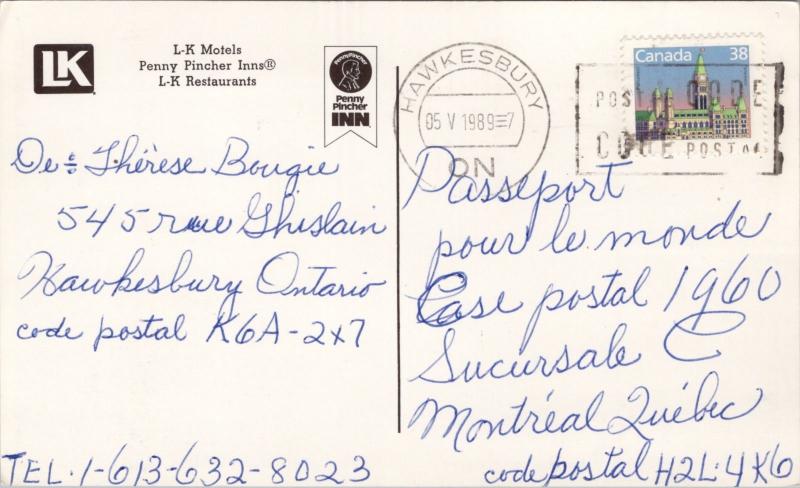 LK
L-K Motels
Penny Pincher Inns®
L-K Restaurants
PennyPincher
Penny
Pincher
INN
HAWKESBURY
05 V 1989 7
ON
Canada 38
POSTAL CODE
CODE POSTAL
De: Thérèse Bougie
545 rue Ghislain
Hawkesbury Ontario
code postal K6A-2X7
TEL. 1-613-632-8023
Passeport
pour le monde
Case postal 1960
Sucursale C
Montréal Québec
code postal H2L.4K6